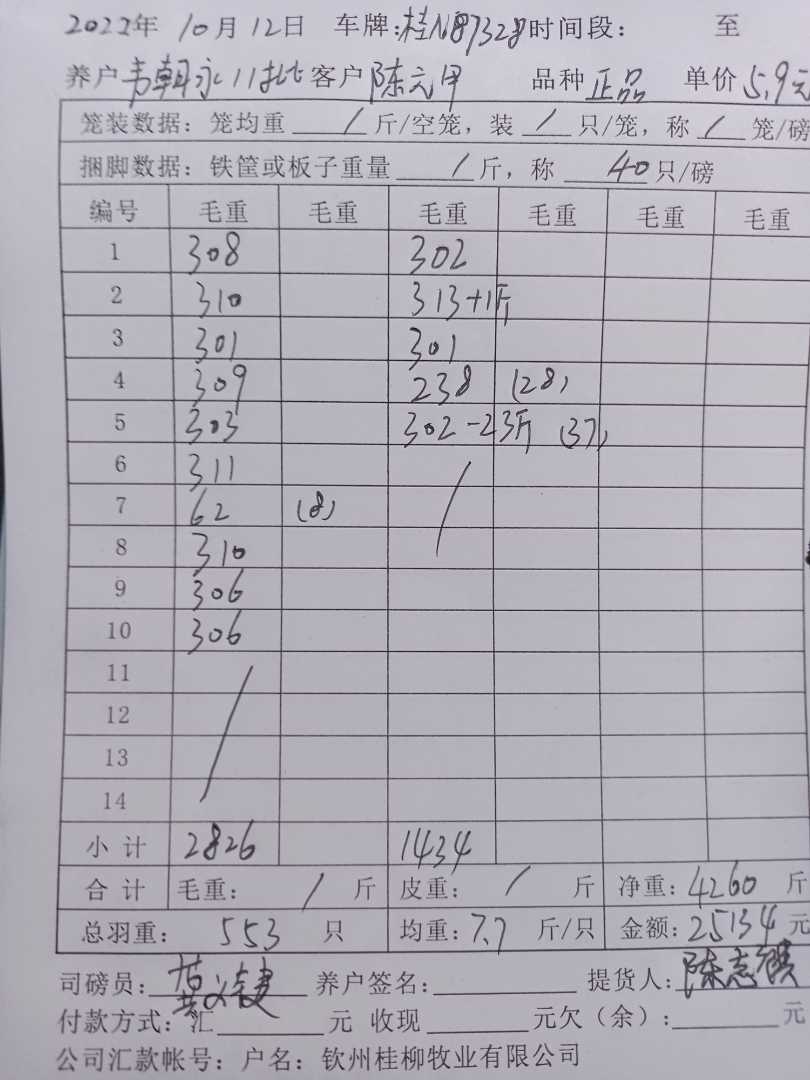 2022年 10月12日 车牌:桂N87328时间段: 至
养户 韦朝永11批 客户 陈元甲 品种 正品 单价 5.9元
笼装数据: 笼均重 / 斤/空笼, 装 / 只/笼, 称 / 笼/磅
捆脚数据: 铁筐或板子重量 / 斤, 称 40 只/磅
编号 毛重 毛重 毛重 毛重 毛重 毛重
1 308 302
2 310 313+1斤
3 301 301
4 309 238 (28)
5 303 302-23斤 (37)
6 311 /
7 62 (8)
8 310
9 306
10 306
11 /
12
13
14
小计 2826 1434
合计 毛重: / 斤 皮重: / 斤 净重: 4260 斤
总羽重: 553 只 均重: 7.7 斤/只 金额: 25134 元
司磅员: 养户签名: 提货人: 陈志
付款方式: 汇 元 收现 元欠(余): 元
公司汇款帐号: 户名: 钦州桂柳牧业有限公司